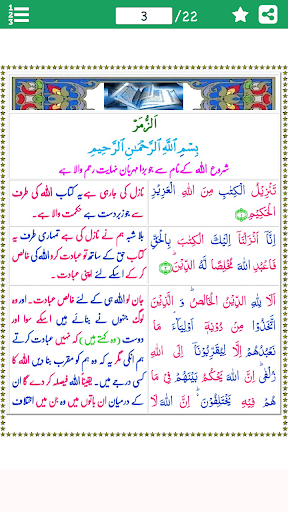 1
2
3
3 /22
اَلزُّمَرْ
بِسْمِ اللّٰهِ الرَّحْمٰنِ الرَّحِيْمِ
شروع اللہ کے نام سے جو بڑا مہربان نہایت رحم والا ہے
تَنْزِيْلُ الْكِتٰبِ مِنَ اللّٰهِ الْعَزِيْزِ
الْحَكِيْمِ
نازل کی جارہی ہے یہ کتاب اللہ کی طرف
سے جو زبردست ہے حکمت والا ہے۔
اِنَّاۤ اَنْزَلْنَاۤ اِلَيْكَ الْكِتٰبَ بِالْحَقِّ
فَاعْبُدِ اللّٰهَ مُخْلِصًا لَّهُ الدِّيْنَ
بلا شبہ ہم نے نازل کی ہے تمہاری طرف یہ
کتاب حق کے ساتھ تو عبادت کرو اللہ کی خالص
کر کے اسکے لئے اپنی عبادت۔
اَلَا لِلّٰهِ الدِّيْنُ الْخَالِصُ ؕ وَ الَّذِيْنَ
اتَّخَذُوْا مِنْ دُوْنِهٖۤ اَوْلِيَآءَ ۘ مَا
نَعْبُدُهُمْ اِلَّا لِيُقَرِّبُوْنَاۤ اِلَى اللّٰهِ
زُلْفٰى ؕ اِنَّ اللّٰهَ يَحْكُمُ بَيْنَهُمْ فِيْ مَا
هُمْ فِيْهِ يَخْتَلِفُوْنَ ؕ اِنَّ اللّٰهَ لَا
جان لو اللہ ہی کے لئے خالص عبادت ہے۔ اور جن
لوگوں جنھوں نے بنائے ہیں اسکے سوا اور
دوست (وہ کہتے ہیں) کہ نہیں عبادت کرتے
ہم انکی مگر یہ کہ وہ ہم کو مقرب بنا دیں اللہ کا
کسی درجے میں۔ یقیناً اللہ فیصلہ کر دے گا ان
کے درمیان ان باتوں میں وہ جن میں اختلاف